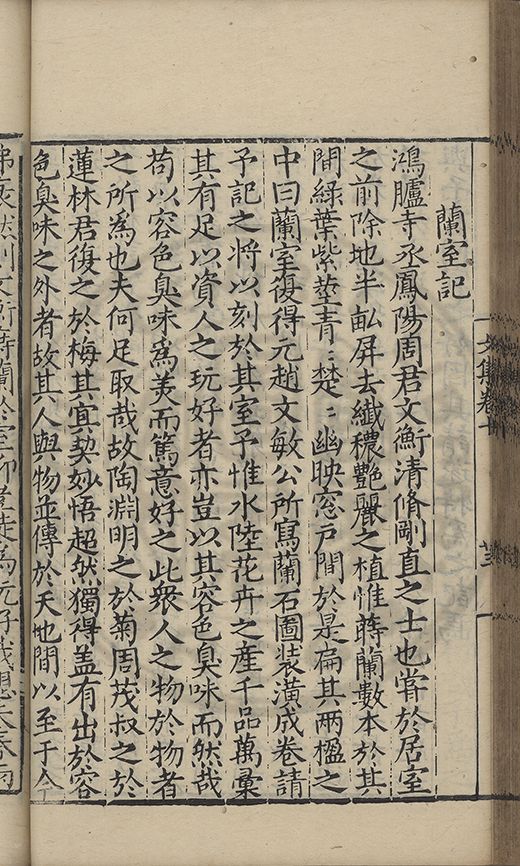 文集卷十
蘭室記
鴻臚寺丞鳳陽周君文衡清脩剛直之士也嘗於居室
之前除地半畝屏去纖穠艷麗之植惟蒔蘭數本於其
間綠葉紫莖青〻楚〻幽映窓戸間於是扁其两楹之
中曰蘭室復得元趙文敏公所寫蘭石圖装潢成卷請
予記之将以刻於其室予惟水陸花卉之産千品萬彙
其有足以資人之玩好者亦豈以其容色臭味而然哉
苟以容色臭味為羙而篤意好之此衆人之物於物者
之所為也夫何足取哉故陶淵明之於菊周茂叔之於
蓮林君復之於梅其宜契妙悟超然獨得盖有出於容
色臭味之外者故其人與物並傳於天地間以至于今
弗衰然則文衡蒔蘭於室